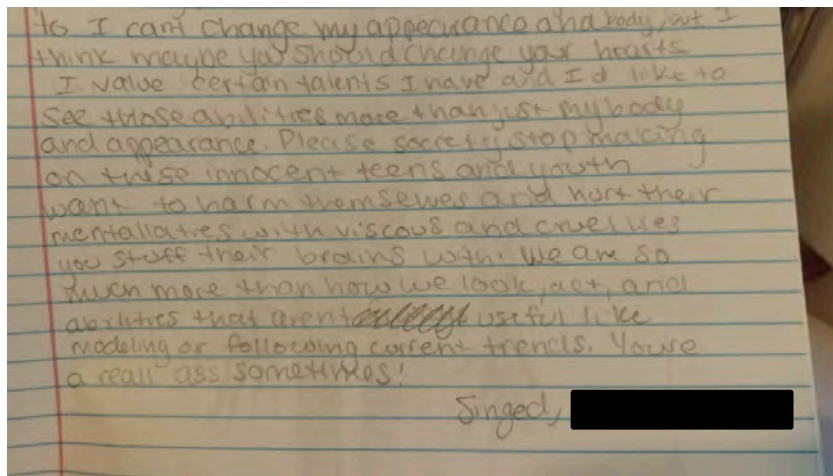 to I cant change my appearance and body, but I
think maybe you should change your hearts
I value certain talents I have and I'd like to
see those abilities more than just my body
and appearance. Please society stop making
on these innocent teens and youth
want to harm themselves and hurt their
mentallaties with viscous and cruel lies
you stuff their brains with. We are so
much more than how we look, act, and
abilities that arent useful like
modeling or following current trends. Youre
a reall ass sometimes!
Singed,